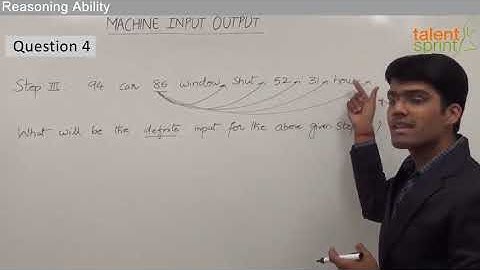 Reasoning Ability
MACHINE INPUT OUTPUT
talent
sprint
Question 4
Step III 94 car 86 window shut 52 31 house
What will be the definite input for the above given Step